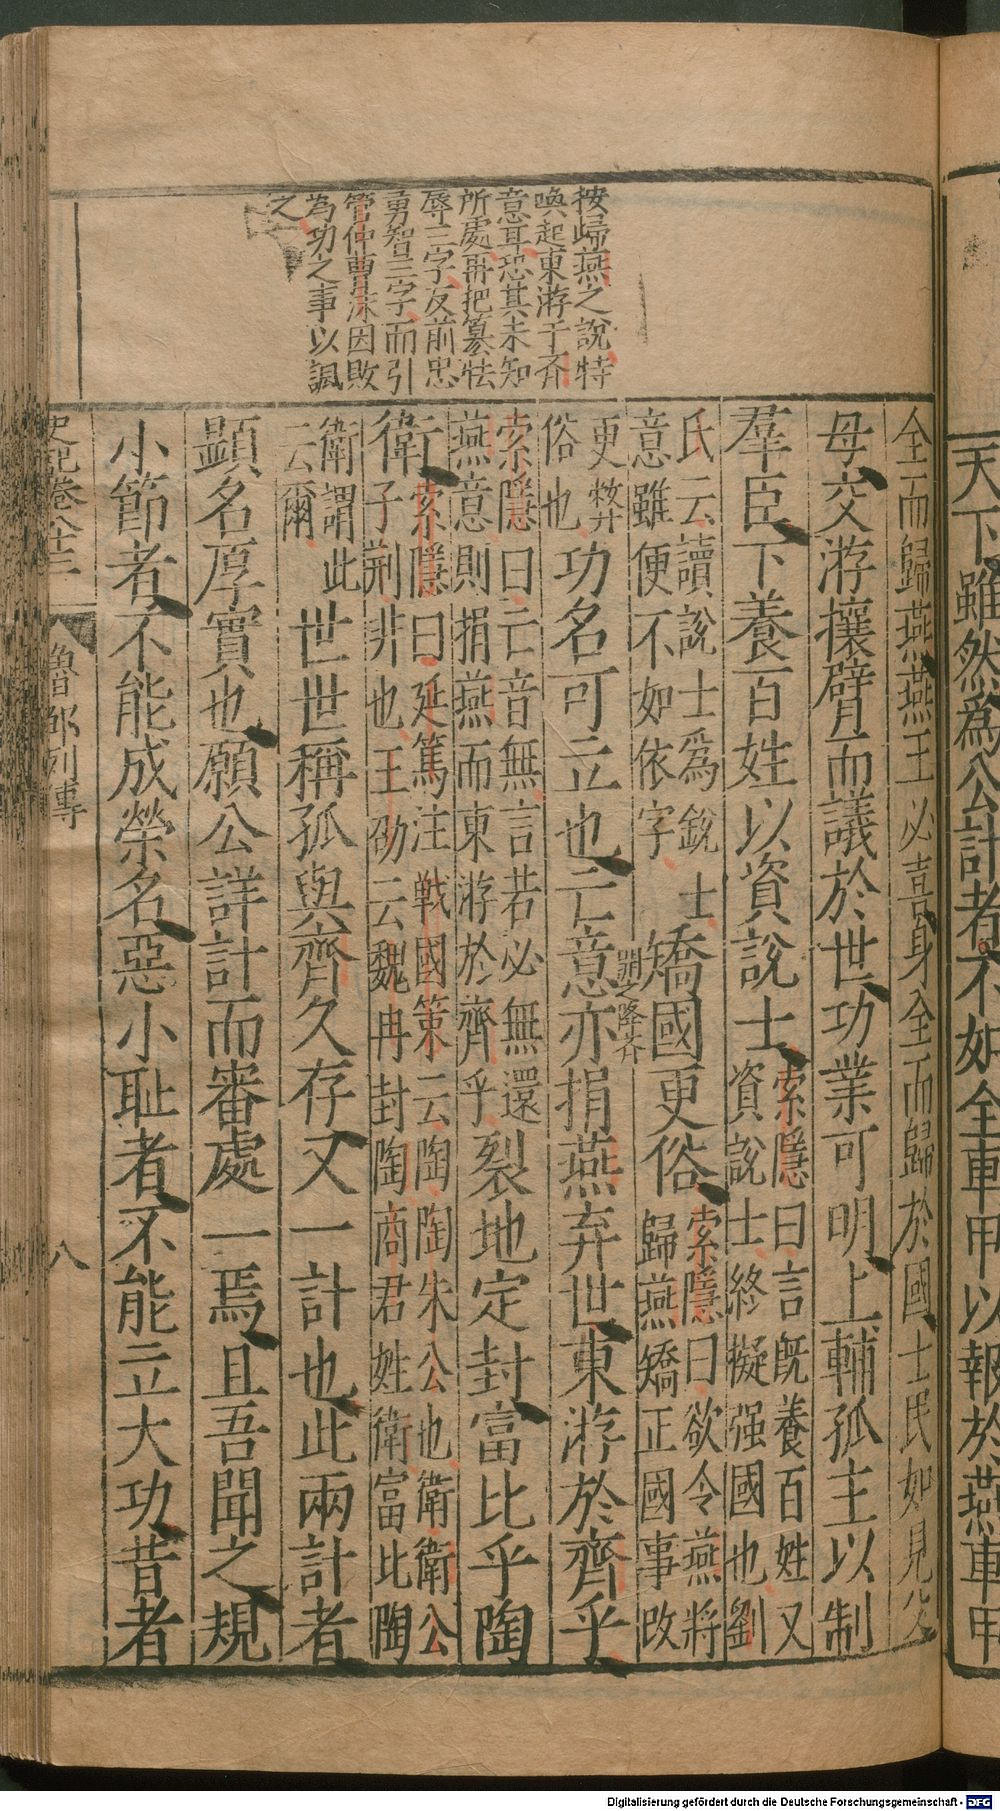 天下雖然爲公計者不如全車甲以報於燕車甲
按歸燕之說特
喚起東游于齊
意耳恐其未知
所處再把篡怯
辱三字反前忠
勇智三字而引
管仲曹沫因敗
為功之事以諷
之
全而歸燕燕王必喜身全而歸於國士民如見父
母交游攘臂而議於世功業可明上輔孤主以制
羣臣下養百姓以資說士索隱曰言既養百姓又資說士終擬强國也劉
氏云讀說士為銳士意雖便不如依字矯國更俗索隱曰欲令燕將歸燕矯正國事改
更弊俗也功名可立也亡意亦捐燕弃世東游於齊乎
索隱曰亡音無言若必無還燕意則捐燕而東游於齊乎裂地定封富比乎陶
衛索隱曰延篤注戰國策云陶陶朱公也衛衛公子荆非也王劭云魏冉封陶商君姓衛富比陶
衛謂此云爾世世稱孤與齊久存又一計也此兩計者
顯名厚實也願公詳計而審處一焉且吾聞之規
小節者不能成榮名惡小恥者不能立大功昔者
史記卷八十三 魯鄒列傳 八
Digitalisierung gefördert durch die Deutsche Forschungsgemeinschaft - DFG